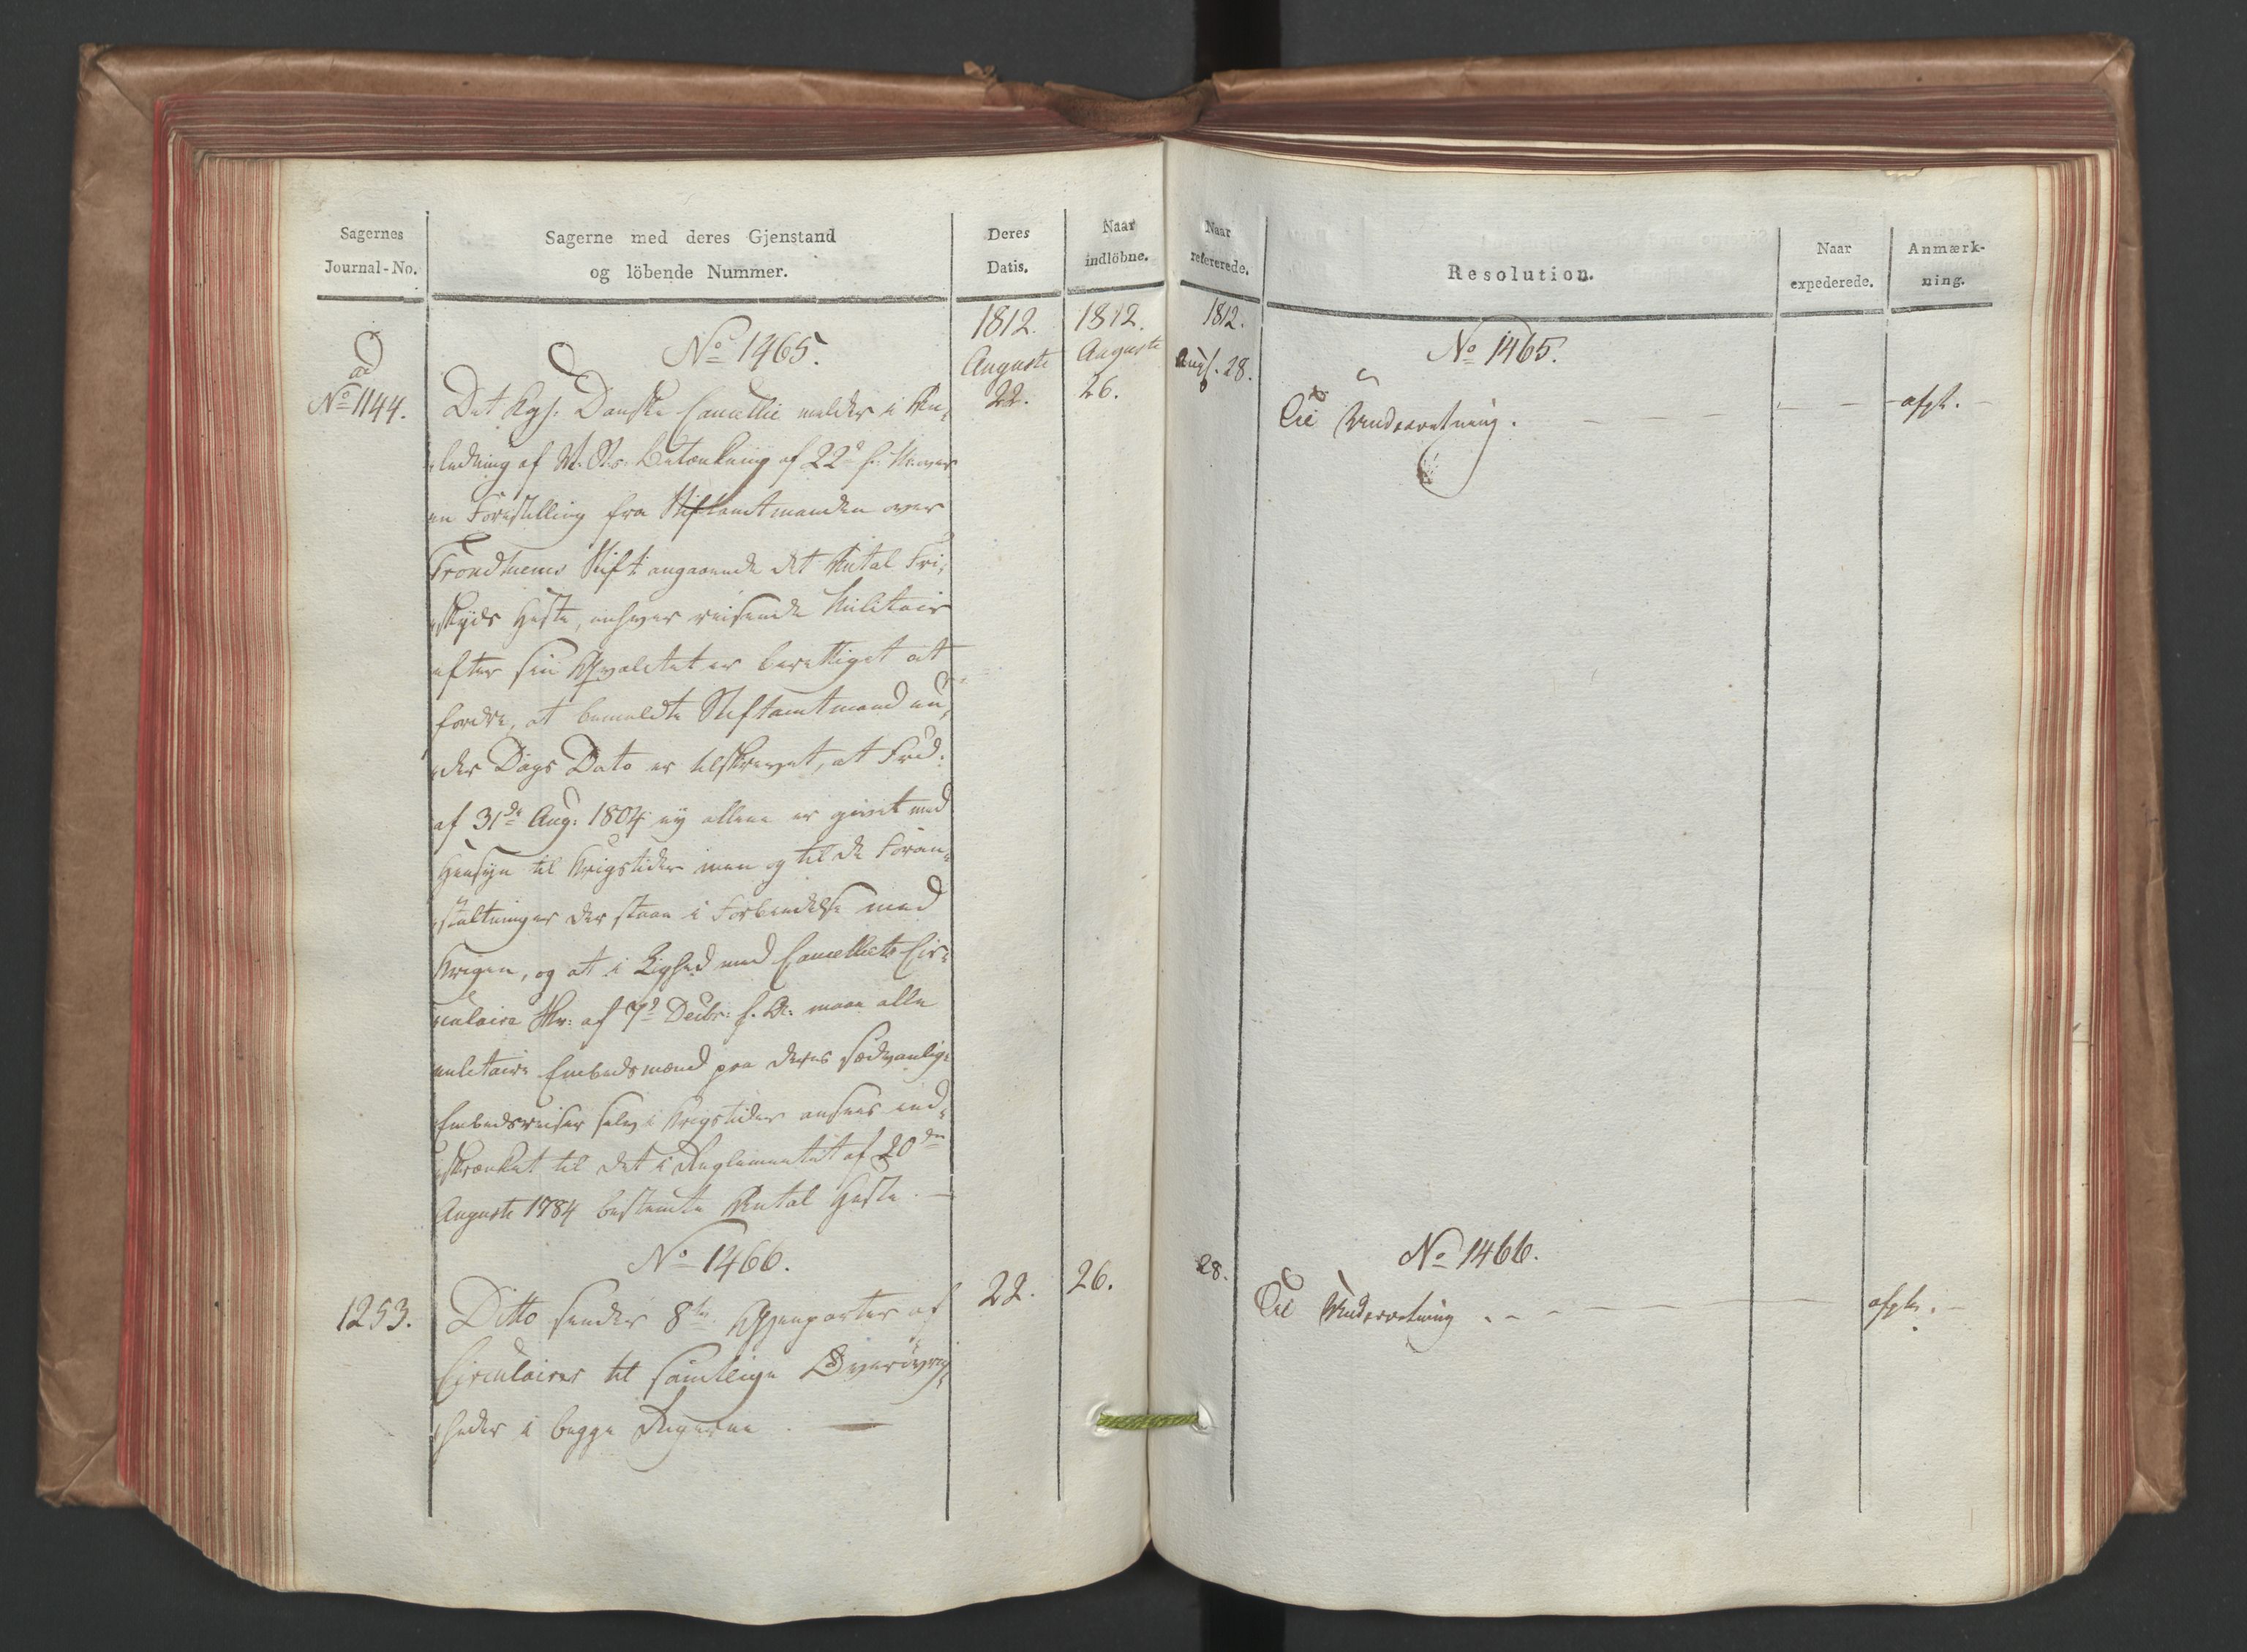 Sagernes
Journal-No.
Sagerne med deres Gjenstand
og löbende Nummer.
Deres
Datis.
Naar
indlöbne.
1812.
1812.
Auguste
Auguste
No 1465.
ad
No 1144.
Det Kgl. Danske Cancellie melder i An-
ledning af Betænkning af 22de f. M. over
en Forestilling fra Stiftamtmanden over
Trondhiems Stift angaaende det Antal Fri-
skyds Heste, enhver reisende Militair
efter sin Qvalitet er berettiget at
fordre, at bemeldte Stiftamtmand un-
der Dags Dato er tilskrevet, at Frd.
af 31de Aug: 1804 ey allene er givet med
Hensyn til Krigstider men og til de Foran-
staltninger der staae i Forbindelse med
Krigen, og at i Lighed med Cancelliets Cir-
culaire Skr: af 7de Decbr: f. A: maae alle
militaire Embedsmænd paa deres sædvanlige
Embedsreiser selv i Krigstider ansees ind-
skrænket til det i Reglementet af 20de
Auguste 1784 bestemte Antal Heste. —
22.
26.
No 1466.
1253.
Ditto sender 8te Gjenparter af
Circulairer til samtlige Overøvrig-
heder i begge Rigerne. —
22.
26.
Naar
refererede.
Resolution.
Naar
expederede.
Anmærk-
ning.
1812.
Aug. 28.
No 1465.
Til Underretning.
afgk.
28.
No 1466.
Til Underretning
afgk.